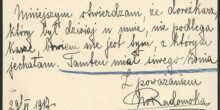 Niniejszym stwierdzam, że dorożkarz
który był dzisiaj u mnie, nie podlega
karze, bowiem nie jest tym, z którym
jechałam. Tamten miał siwego konia
Z poważaniem
Radomska
29/VI 1917